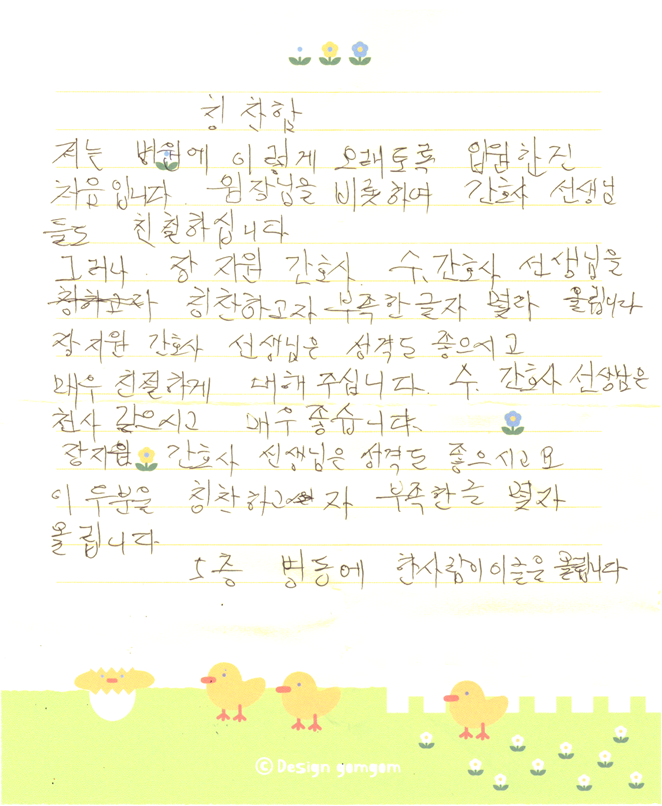 칭찬함
저는 병원에 이렇게 오래토록 입원한진
처음입니다. 원장님을 비롯하여 간호사 선생님
들도 친절하십니다
그러나. 장지원 간호사. 수.간호사 선생님을
칭하고자 칭찬하고자 부족한글자 몇자 올립니다
장지원 간호사 선생님은 성격도 좋으시고
매우 친절하게 대해 주십니다. 수. 간호사 선생님은
천사 같으시고 매우 좋습니다.
장지원 간호사 선생님은 성격도 좋으시고요
이 두분을 칭찬하고 자 부족한글 몇자
올립니다.
5층 병동에 한사람이 이글을 올립니다
© Design gomgom